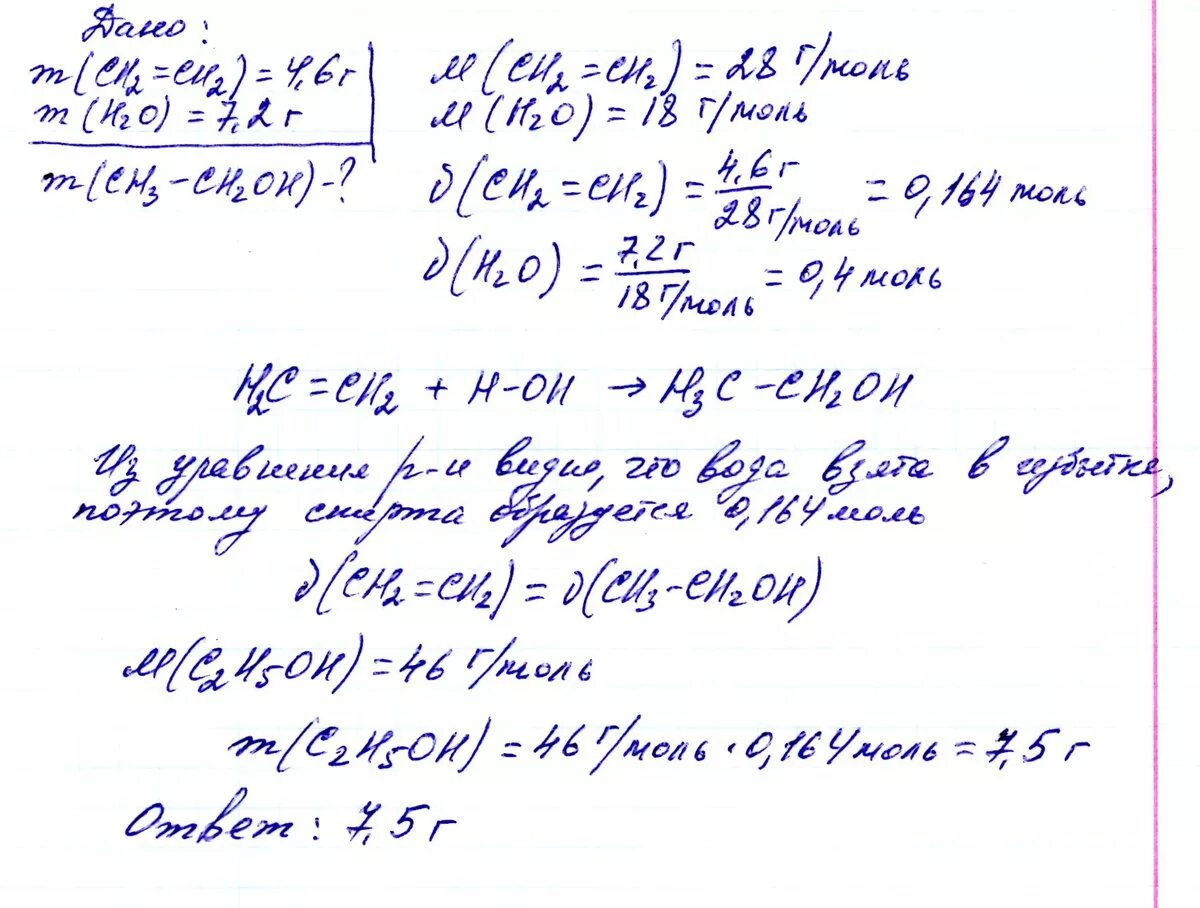 Дано:
m(CH₂=CH₂)=4,6г
m(H₂O)=7,2г
m(CH₃-CH₂OH)-?
M(CH₂=CH₂)=28 г/моль
M(H₂O)=18 г/моль
∂(CH₂=CH₂)=4,6г/28г/моль=0,164 моль
∂(H₂O)=7,2г/18г/моль=0,4 моль
H₂C=CH₂ + H-OH → H₃C-CH₂OH
Из уравнения р-и видно, что вода взята в избытке,
поэтому спирта образуется 0,164 моль
∂(CH₂=CH₂)=∂(CH₃-CH₂OH)
M(C₂H₅OH)=46 г/моль
m(C₂H₅OH)=46 г/моль · 0,164 моль = 7,5 г
Ответ: 7,5 г